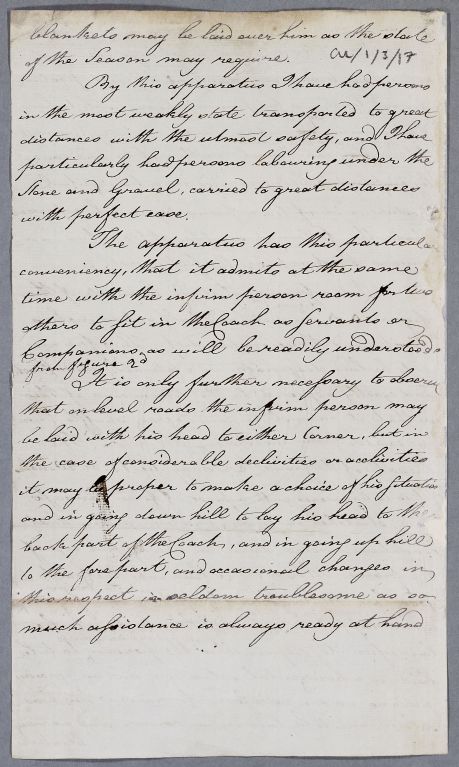 blankets may be laid over him as the state
of the Season may require.
CU/1/3/17
By this apparatus I have had persons
in the most weakly state transported to great
distances with the utmost safety, and I have
particularly had persons labouring under the
Stone and Gravel, carried to great distances
with perfect ease.
The apparatus has this particular
conveniency, that it admits at the same
time with the infirm person room for two
others to sit in the Coach as Servants or
Companions, as will be readily understood
from figure 2d
It is only further necessary to observe
that on level roads the infirm person may
be laid with his head to either Corner, but in
the case of considerable declivities or acclivities
it may be proper to make a choice of his Situation
and in going down hill to lay his head to the
back part of the Coach, and in going up hill
to the fore part, and occasional changes in
this respect is seldom troublesome as so
much assistance is always ready at hand